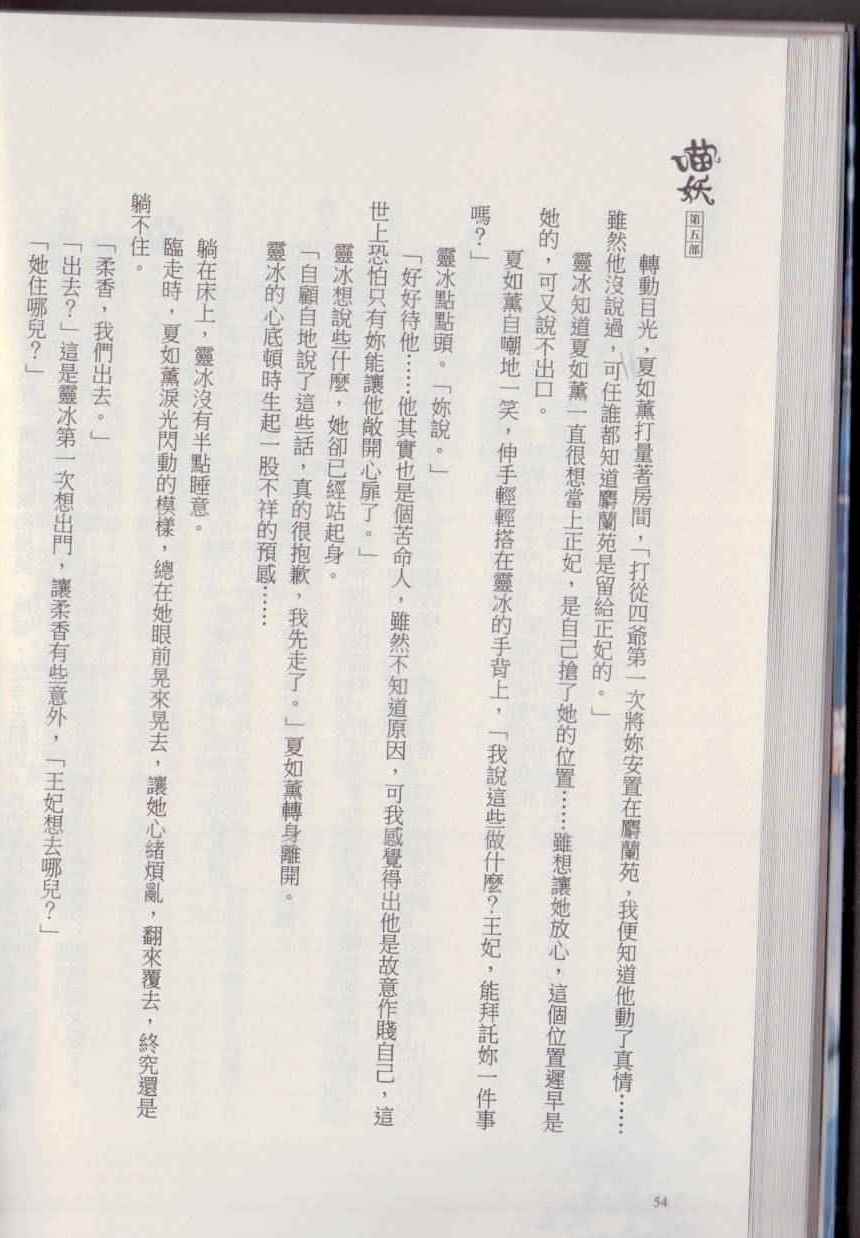 喵妖
第五部
轉動目光，夏如薰打量著房間，「打從四爺第一次將妳安置在麝蘭苑，我便知道他動了真情……
雖然他沒說過，可任誰都知道麝蘭苑是留給正妃的。」
靈冰知道夏如薰一直很想當上正妃，是自己搶了她的位置……雖想讓她放心，這個位置遲早是
她的，可又說不出口。
夏如薰自嘲地一笑，伸手輕輕搭在靈冰的手背上，「我說這些做什麼？王妃，能拜託妳一件事
嗎？」
靈冰點點頭。「妳說。」
「好好待他……他其實也是個苦命人，雖然不知道原因，可我感覺得出他是故意作賤自己，這
世上恐怕只有妳能讓他敞開心扉了。」
靈冰想說些什麼，她卻已經站起身。
「自顧自地說了這些話，真的很抱歉，我先走了。」夏如薰轉身離開。
靈冰的心底頓時生起一股不祥的預感……
躺在床上，靈冰沒有半點睡意。
臨走時，夏如薰淚光閃動的模樣，總在她眼前晃來晃去，讓她心緒煩亂，翻來覆去，終究還是
躺不住。
「柔香，我們出去。」
「出去？」這是靈冰第一次想出門，讓柔香有些意外，「王妃想去哪兒？」
「她住哪兒？」
54